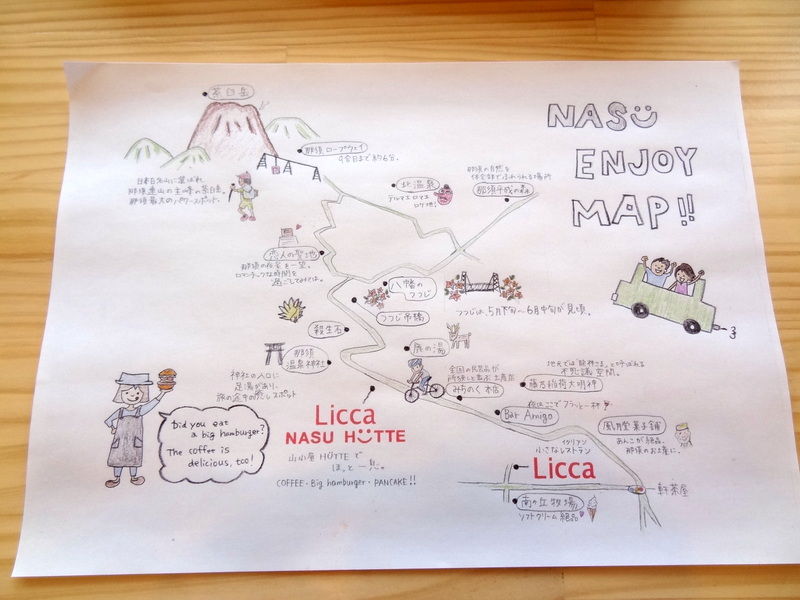 NASU
ENJOY
MAP!!
茶臼岳
那須ロープウェイ
9合目まで約6分。
日本百名山に選ばれ、
那須連山の主峰の茶臼岳。
那須最大のパワースポット。
北温泉
テルマエロマエ
ロケ地!
那須の自然を
体全部でふれられる場所
那須平成の森
恋人の聖地
那須の夜景を一望。
ロマンチックな時間を
過ごしてみては。
八幡の
つつじ
つつじ吊橋
つつじは、5月下旬～6月中旬が見頃。
殺生石
鹿の湯
那須
温泉神社
神社の入口に
足湯があり、
旅の途中の癒しスポット
全国の民芸品が
所狭しと並ぶ土産店
みちのく本店
不思議空間。
喰初稲荷大明神
Bar Amigo
夜はここでフラッと一杯
風月堂菓子舗
あんこが絶品。
那須のお土産に。
Did you eat
a big hamburger?
The coffee is
delicious, too!
Licca
NASU HÜTTE
山小屋 HÜTTE で
ほっと一息。
COFFEE・Big hamburger・PANCAKE!!
イタリアン
小さなレストラン
Licca
一軒茶屋
南ヶ丘牧場
ソフトクリーム絶品